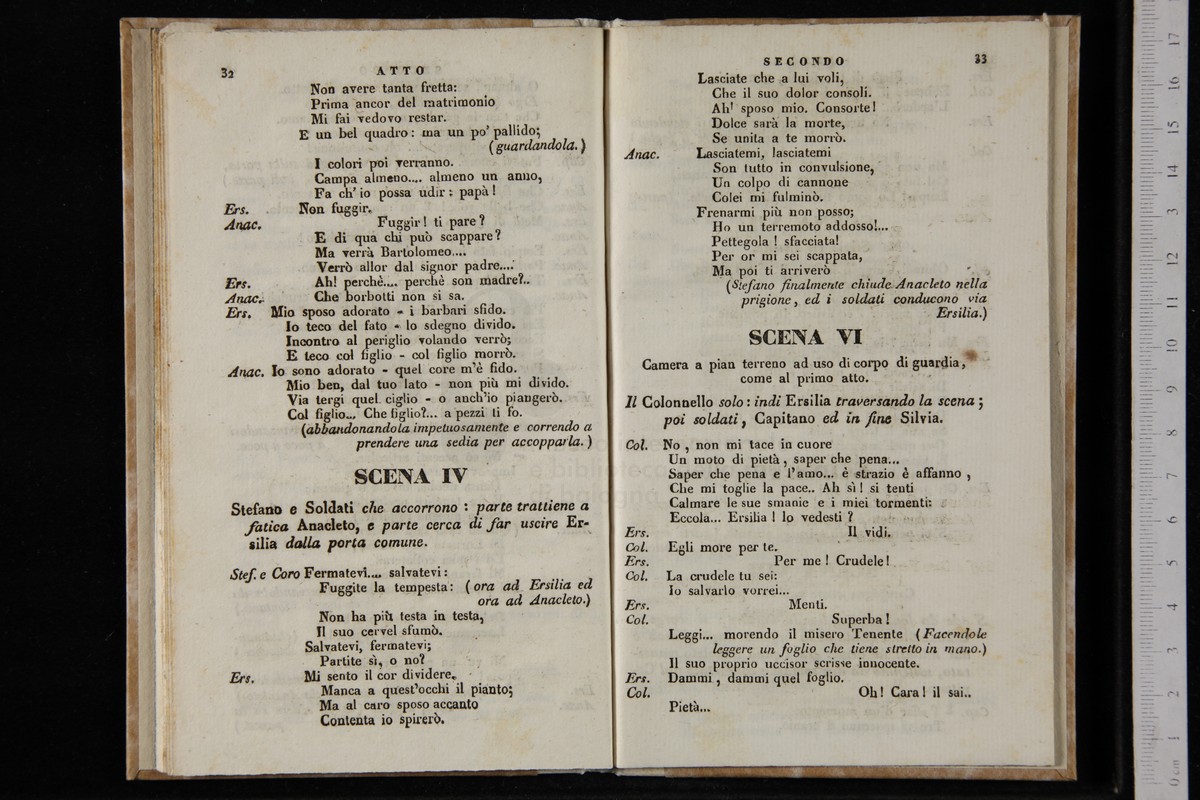 32
ATTO
Non avere tanta fretta:
Prima ancor del matrimonio
Mi fai vedovo restar.
E un bel quadro: ma un po' pallido;
(guardandola.)
I colori poi verranno.
Campa almeno.... almeno un anno,
Fa ch' io possa udir: papà!
Ers. Non fuggir.
Anac. Fuggir! ti pare?
E di quà chi può scappare?
Ma verrà Bartolomeo....
Verrò allor dal signor padre....
Ers. Ah! perchè.... perchè son madre?..
Anac. Che borbotti non si sa.
Ers. Mio sposo adorato - i barbari sfido.
Io teco del fato - lo sdegno divido.
Incontro al periglio volando verrò;
E teco col figlio - col figlio morrò.
Anac. Io sono adorato - quel core m'è fido.
Mio ben, dal tuo lato - non più mi divido.
Via tergi quel ciglio - o anch'io piangerò.
Col figlio... Che figlio?... a pezzi ti fo.
(abbandonandola impetuosamente e correndo a
prendere una sedia per accopparla.)
SCENA IV
Stefano e Soldati che accorrono: parte trattiene a
fatica Anacleto, e parte cerca di far uscire Er-
silia dalla porta comune.
Stef. e Coro Fermatevi.... salvatevi:
Fuggite la tempesta: (ora ad Ersilia ed
ora ad Anacleto.)
Non ha più testa in testa,
Il suo cervel sfumò.
Salvatevi, fermatevi;
Partite sì, o no?
Ers. Mi sento il cor dividere.
Manca a quest'occhi il pianto;
Ma al caro sposo accanto
Contenta io spirerò.
SECONDO
33
Lasciate che a lui voli,
Che il suo dolor consoli.
Ah! sposo mio. Consorte!
Dolce sarà la morte,
Se unita a te morrò.
Anac. Lasciatemi, lasciatemi
Son tutto in convulsione,
Un colpo di cannone
Colei mi fulminò.
Frenarmi più non posso;
Ho un terremoto addosso!...
Pettegola! sfacciata!
Per or mi sei scappata,
Ma poi ti arriverò
(Stefano finalmente chiude Anacleto nella
prigione, ed i soldati conducono via
Ersilia.)
SCENA VI
Camera a pian terreno ad uso di corpo di guardia,
come al primo atto.
Il Colonnello solo: indi Ersilia traversando la scena;
poi soldati, Capitano ed in fine Silvia.
Col. No, non mi tace in cuore
Un moto di pietà, saper che pena...
Saper che pena e l'amo... è strazio è affanno,
Che mi toglie la pace.. Ah sì! si tenti
Calmare le sue smanie e i miei tormenti:
Eccola... Ersilia! lo vedesti?
Ers. Il vidi.
Col. Egli more per te.
Ers. Per me! Crudele!
Col. La crudele tu sei:
Io salvarlo vorrei...
Ers. Menti.
Col. Superba!
Leggi... morendo il misero Tenente (Facendole
leggere un foglio che tiene stretto in mano.)
Il suo proprio uccisor scrisse innocente.
Ers. Dammi, dammi quel foglio.
Col. Oh! Cara! il sai..
Pietà...